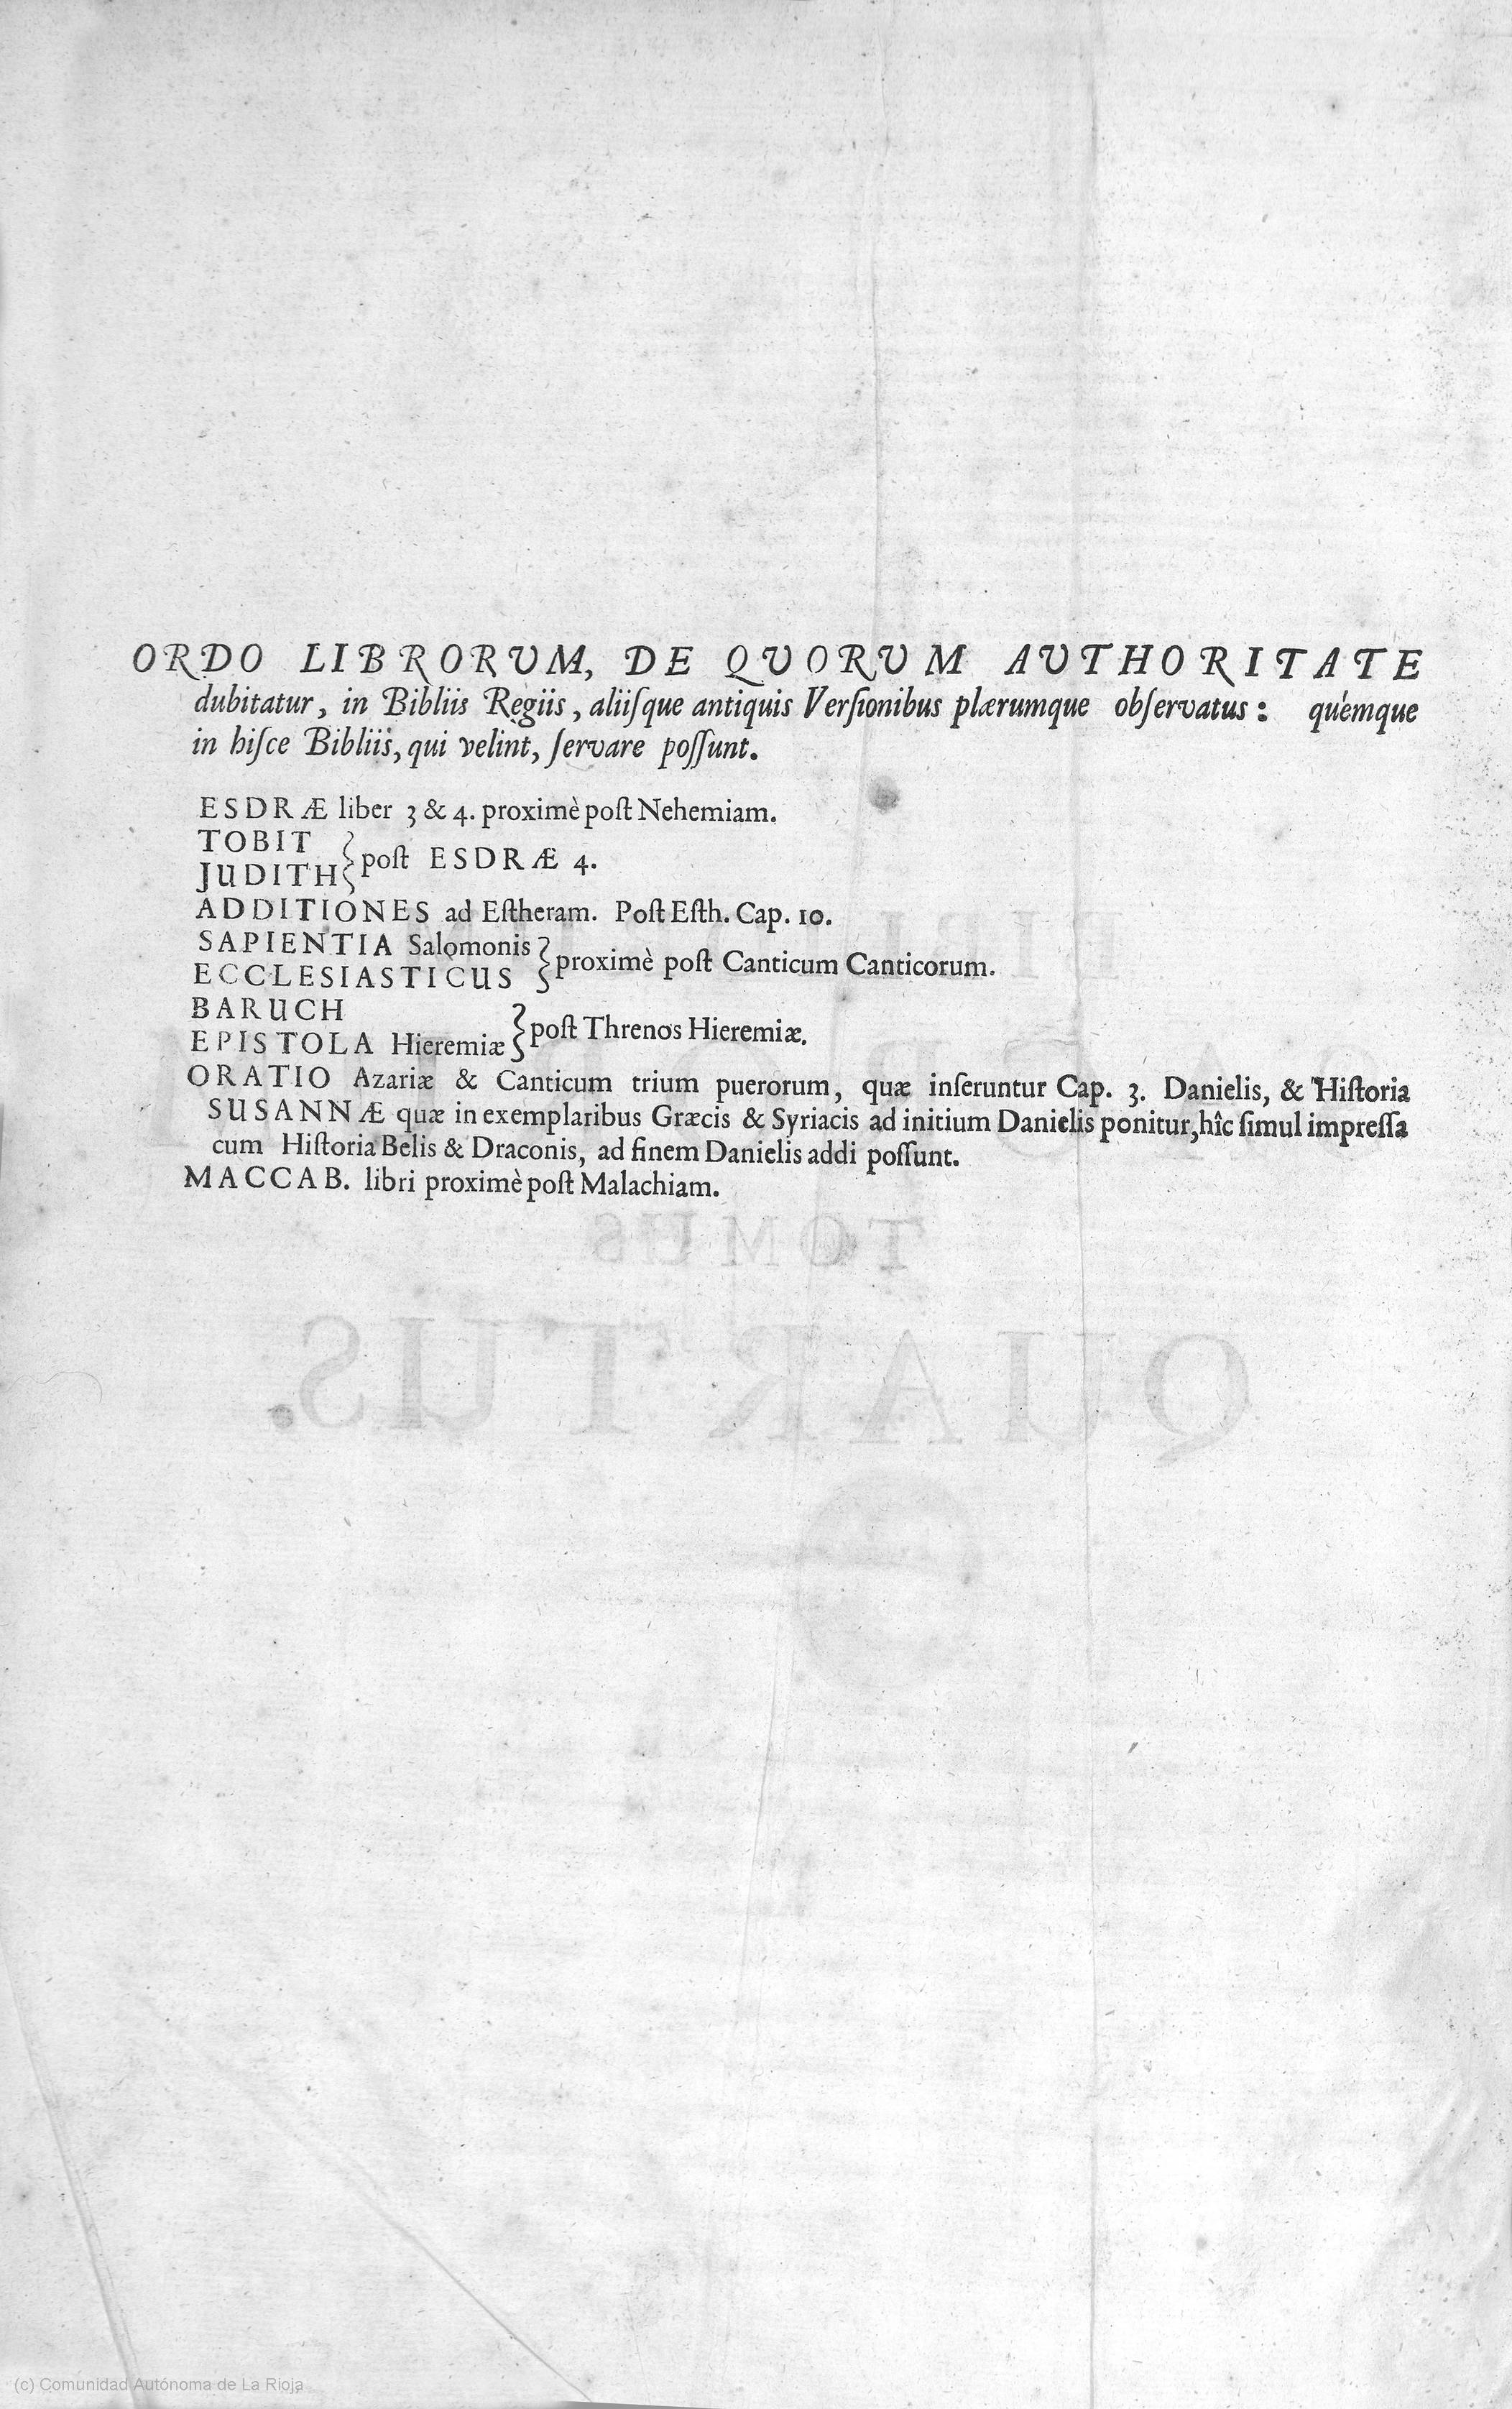 ORDO LIBRORUM, DE QVORVM AUTHORITATE
dubitatur, in Bibliis Regiis, aliiſque antiquis Verſionibus plærumque obſervatus: quèmque
in hiſce Bibliis, qui velint, ſervare poſſunt.
ESDRÆ liber 3 & 4. proximè poſt Nehemiam.
TOBIT
JUDITH } poſt ESDRÆ 4.
ADDITIONES ad Eſtheram. Poſt Eſth. Cap. 10.
SAPIENTIA Salomonis
ECCLESIASTICUS } proximè poſt Canticum Canticorum.
BARUCH
EPISTOLA Hieremiæ } poſt Threnos Hieremiæ.
ORATIO Azariæ & Canticum trium puerorum, quæ inſeruntur Cap. 3. Danielis, & Hiſtoria
SUSANNÆ quæ in exemplaribus Græcis & Syriacis ad initium Danielis ponitur, hîc ſimul impreſſa
cum Hiſtoria Belis & Draconis, ad finem Danielis addi poſſunt.
MACCAB. libri proximè poſt Malachiam.
TOMUS
QUARTUS.
(c) Comunidad Autónoma de La Rioja